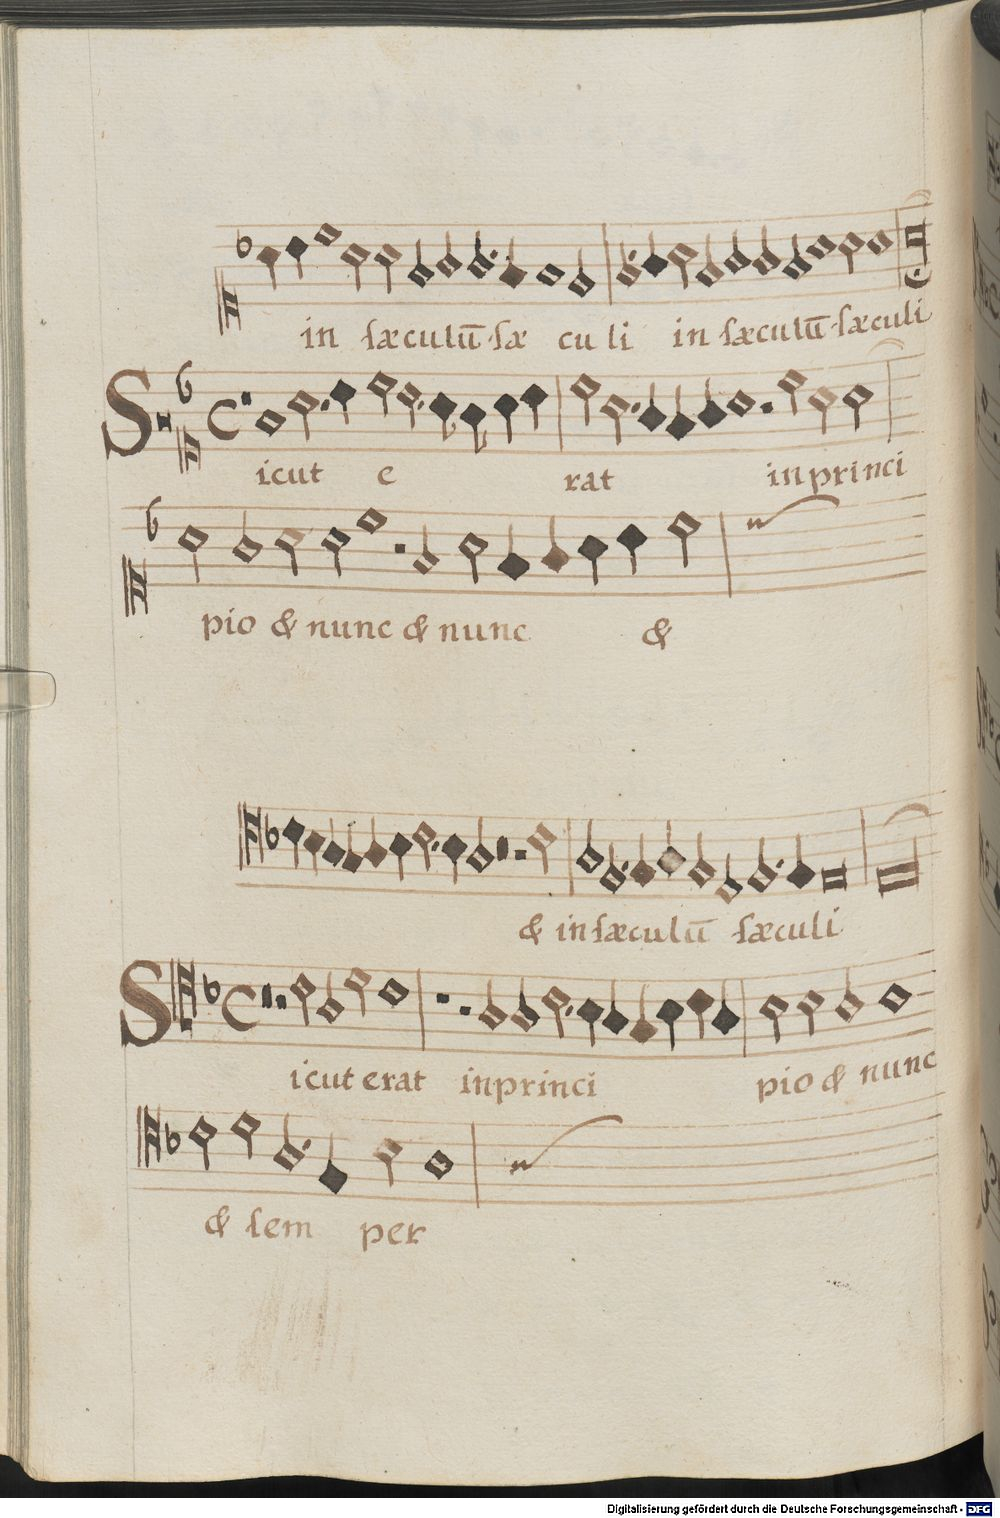 in sæculū sæ cu li in sæculū sæculi
Sicut e rat in princi
pio & nunc & nunc &
& in sæculū sæculi
Sicut erat in princi pio & nunc
& sem per
Digitalisierung gefördert durch die Deutsche Forschungsgemeinschaft - DFG